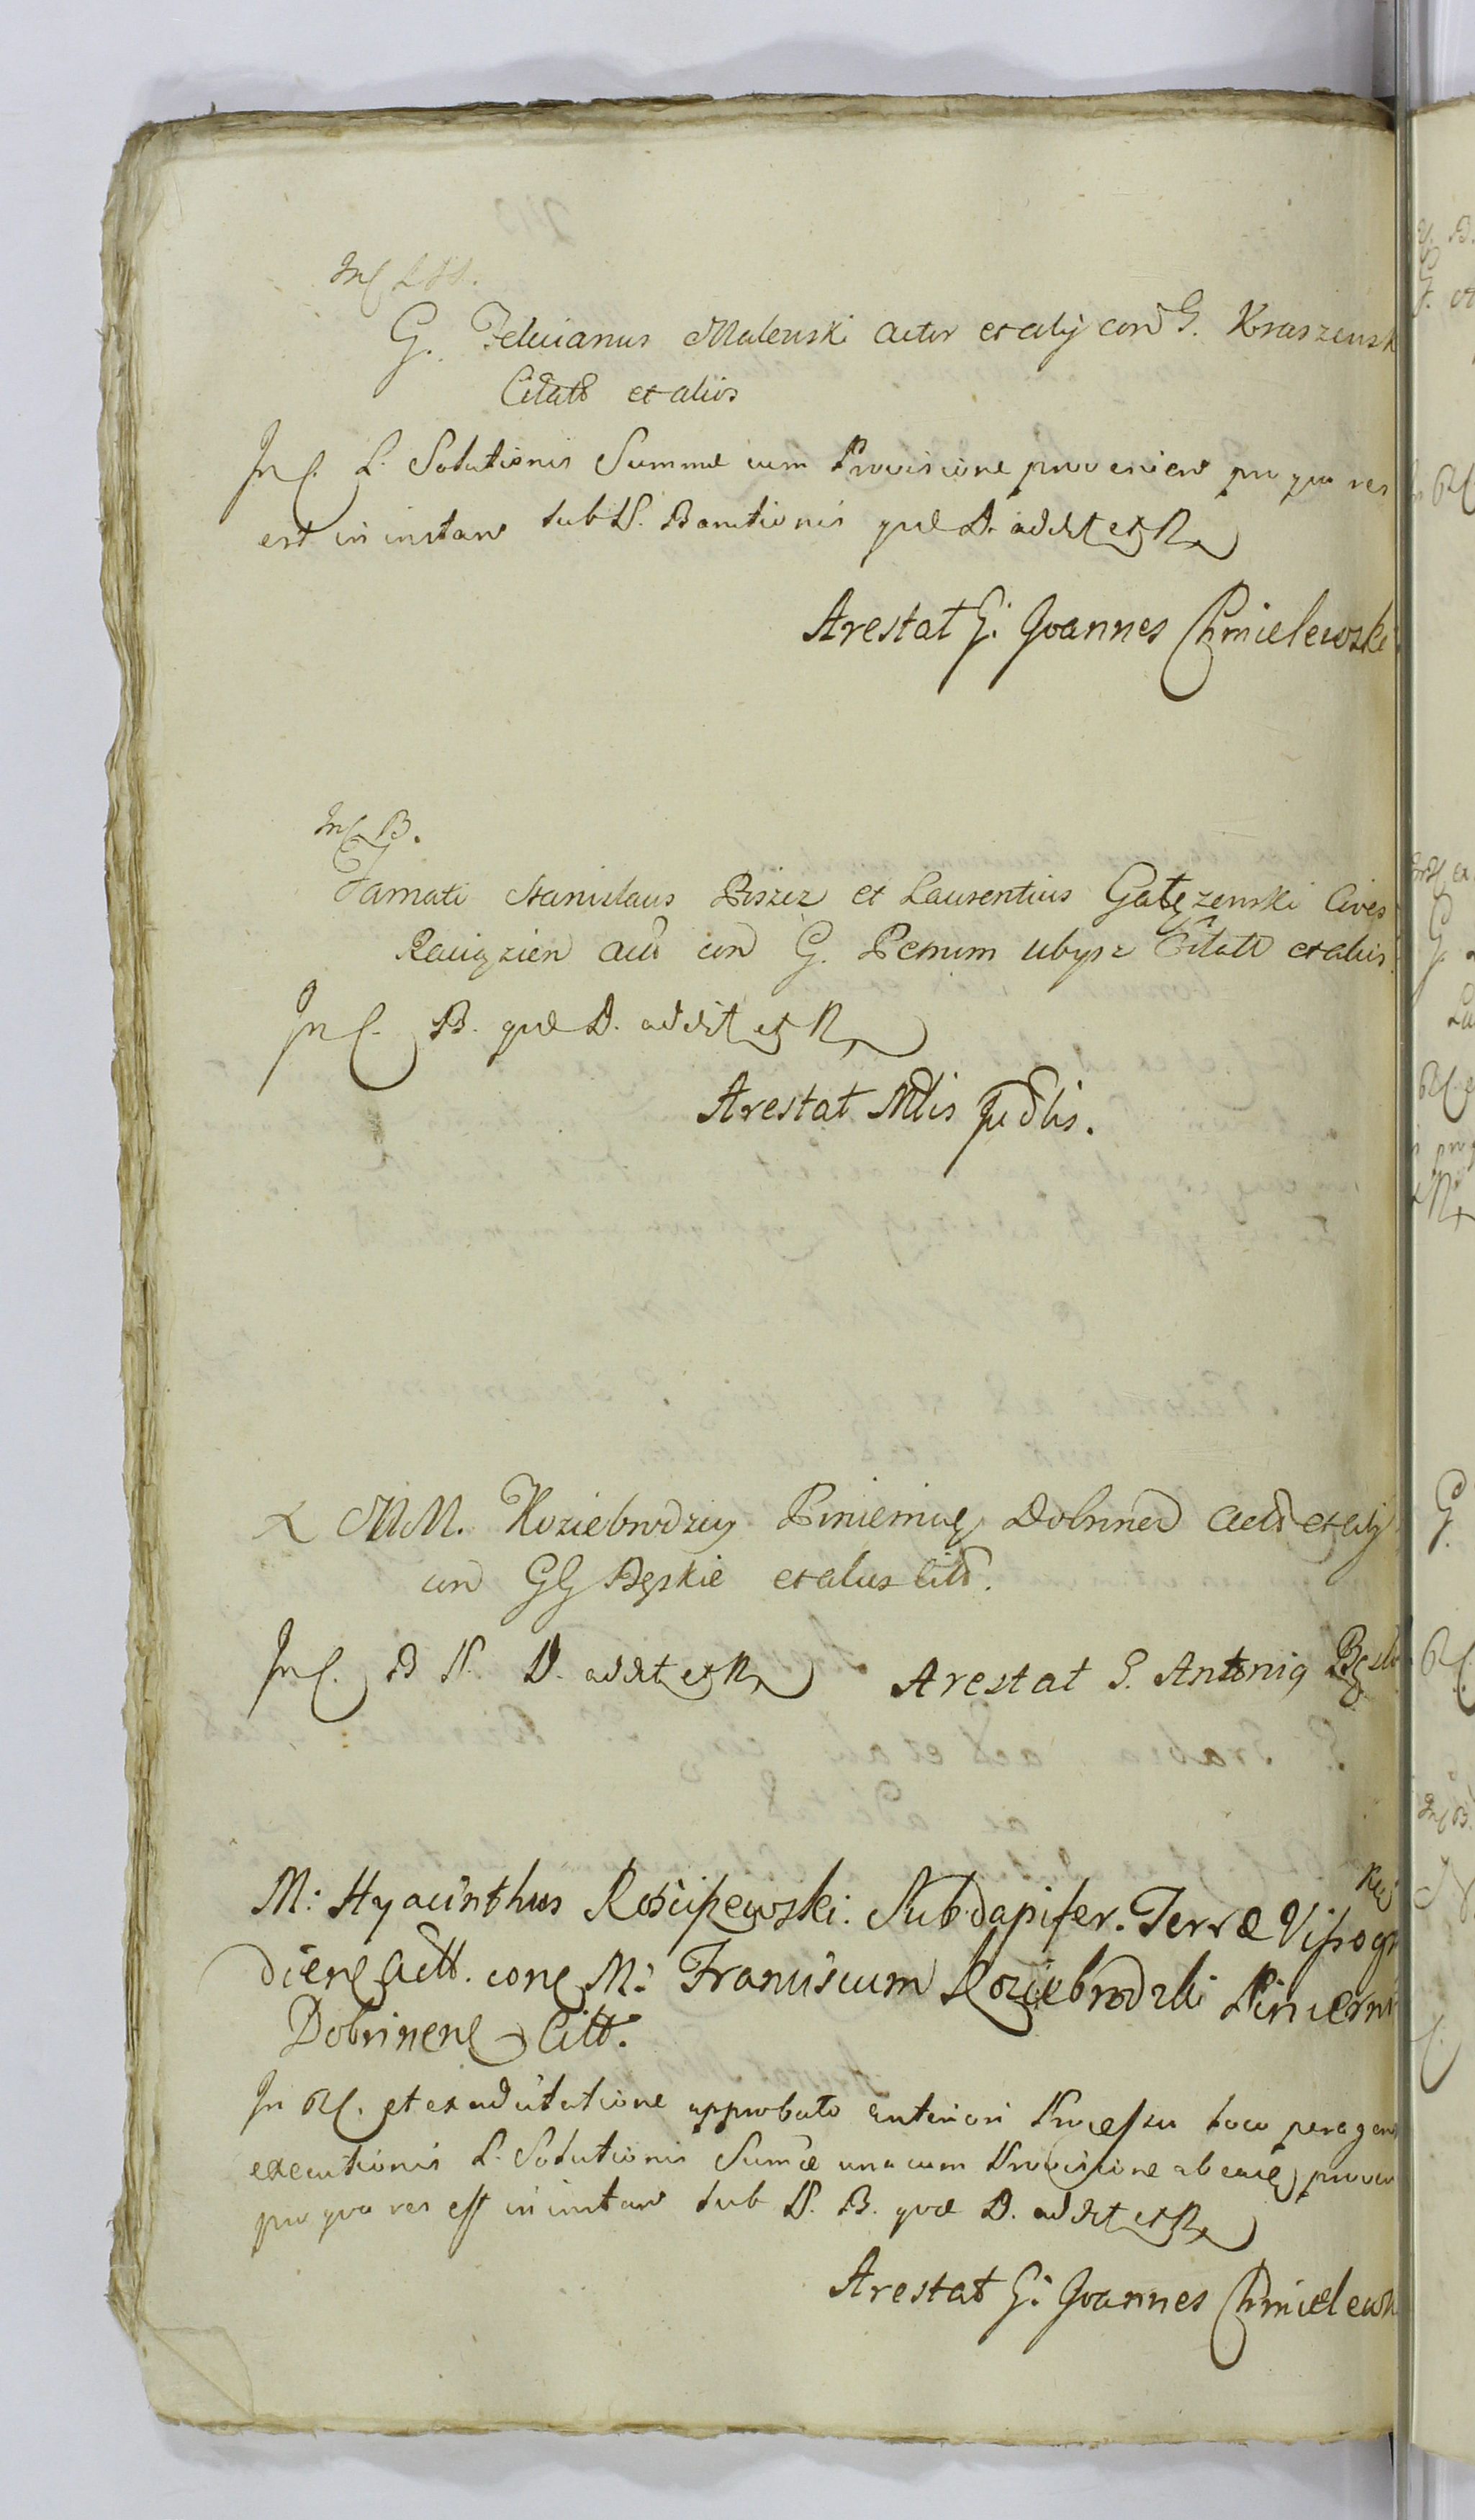 In C
G. Felicianus Malewski Actor et alij con G. Kraszewsk
Citatd et alios
In C. L. Solutionis Summæ cum Provisione provenien pro qua res
est in instan sub P. Bannitionis quæ D. addit et R
Arestat G: Joannes Chmielewski
In C B.
Famati Stanislaus Piszcz et Laurentius Gałęzewski Cives
Raciązien con G. Ubysz Citatt et alios
In C. B. quæ D. addit et R
Arestat Mtis Judlis.
MM. Koziebrodzcy Pincernię Dobrinen et alij
con GG Bęskie et alios Citt.
In C. B P. D. addit et R Arestat G. Antonig Bęski
M: Hyacinthus Rościszewski. Subdapifer. Terræ Vissogr
diens Actt. cons M: Franciscum Koziebrodzki Pincern
Dobrinens Citt.
In RC. et ex adcitatione approbato anteriori Processu loco peragen
executionis L. Solutionis Sumæ una cum Provisione ab ea proven
pro qua res est in instan sub P. B. quæ D. addit et R
Arestat G: Joannes Chmielewsk